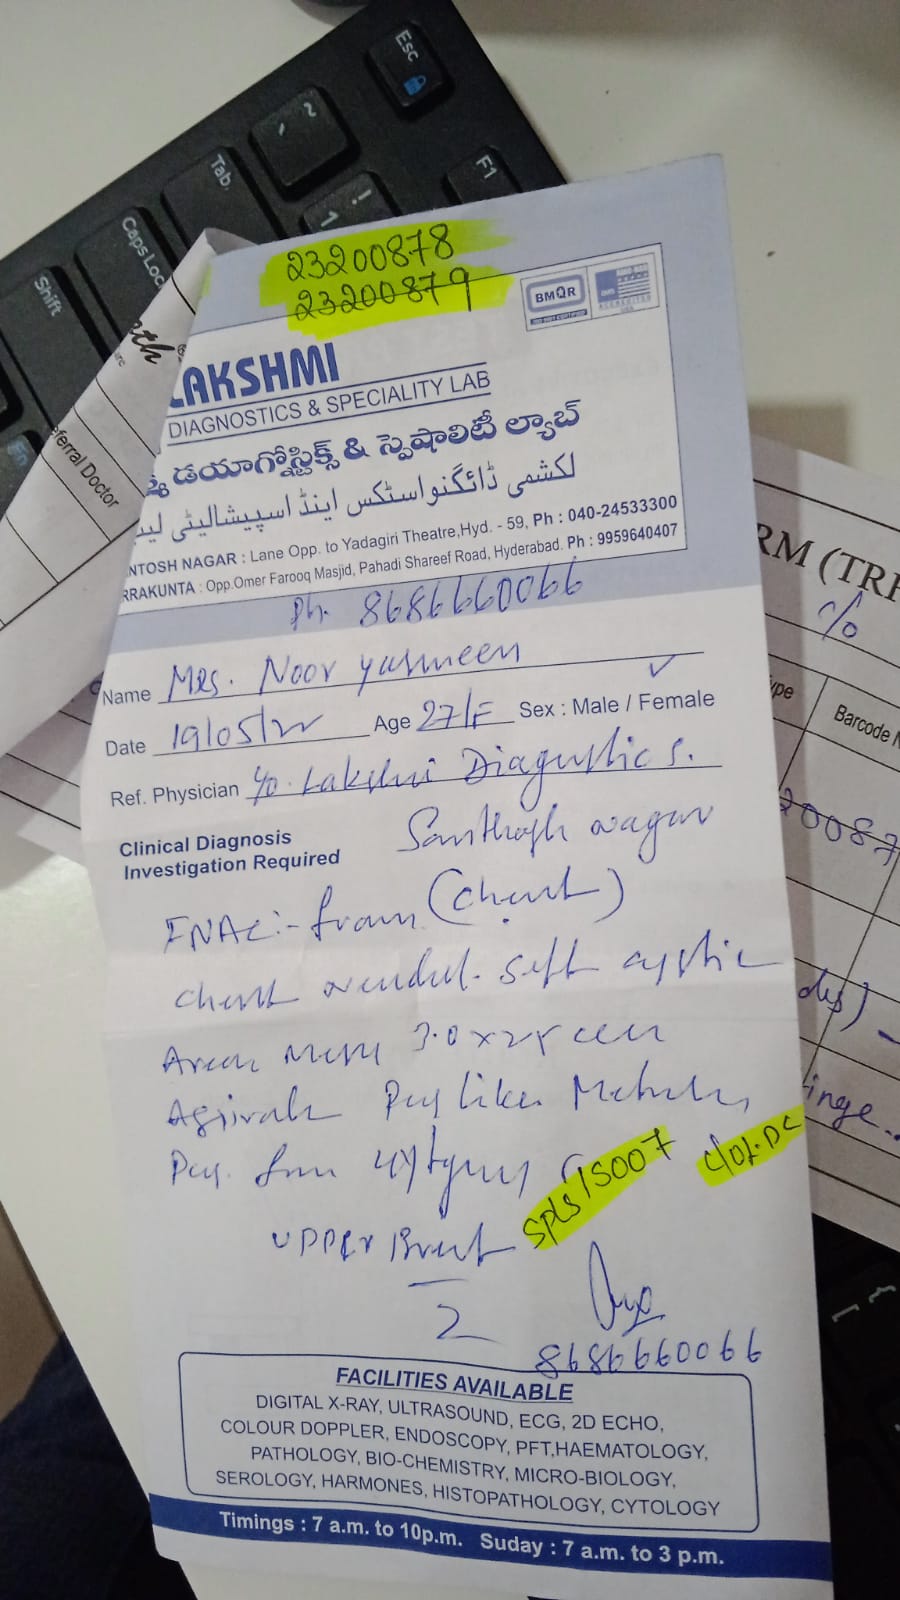 Esc
~
`
F1
!
1
Tab
Caps Loc
Shift
Fn
23200878
23200879
BMQR
LAKSHMI
DIAGNOSTICS & SPECIALITY LAB
డయాగ్నోస్టిక్స్ & స్పెషాలిటీ ల్యాబ్
لکشمی ڈائگنواسٹکس اینڈ اسپیشالیٹی لیب
NTOSH NAGAR : Lane Opp. to Yadagiri Theatre,Hyd. - 59, Ph : 040-24533300
RRAKUNTA : Opp.Omer Farooq Masjid, Pahadi Shareef Road, Hyderabad. Ph : 9959640407
Ph. 8686660066
Name Mrs. Noor yasmeen
Date 19/05/22 Age 27/F Sex : Male / Female
Ref. Physician c/o. Lakshmi Diagnostics.
Santhosh nagar
Clinical Diagnosis
Investigation Required
FNAC:- from (chest)
chest nodul. soft cystic
Area 3.0 x cm
Aspirate Pus like Material
Pus.
upper
SPLS/5007
2
8686660066
FACILITIES AVAILABLE
DIGITAL X-RAY, ULTRASOUND, ECG, 2D ECHO,
COLOUR DOPPLER, ENDOSCOPY, PFT,HAEMATOLOGY,
PATHOLOGY, BIO-CHEMISTRY, MICRO-BIOLOGY,
SEROLOGY, HARMONES, HISTOPATHOLOGY, CYTOLOGY
Timings : 7 a.m. to 10p.m. Suday : 7 a.m. to 3 p.m.
eferral Doctor
RM (TRF
c/o
ype
Barcode N
20087
des)
inge